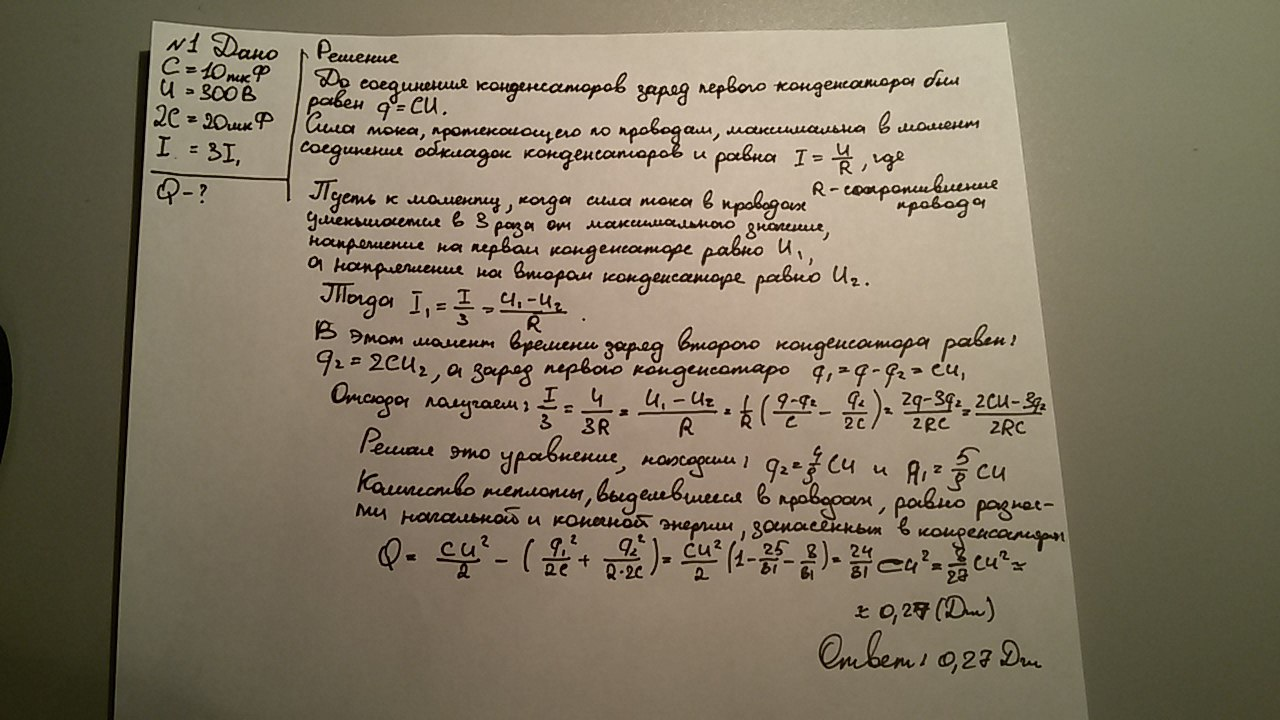 №1 Дано
C = 10мкФ
U = 300В
2C = 20мкФ
I = 3I₁
Q - ?
Решение
До соединения конденсаторов заряд первого конденсатора был
равен q = CU.
Сила тока, протекающего по проводам, максимальна в момент
соединения обкладок конденсаторов и равна I = U/R, где
R - сопротивление
провода
Пусть к моменту, когда сила тока в проводах
уменьшается в 3 раза от максимального значение,
напряжение на первом конденсаторе равно U₁,
а напряжение на втором конденсаторе равно U₂.
Тогда I₁ = I/3 = (U₁ - U₂)/R.
В этот момент времени заряд второго конденсатора равен:
q₂ = 2CU₂, а заряд первого конденсатора q₁ = q - q₂ = CU₁
Отсюда получаем: I/3 = U/3R = (U₁ - U₂)/R = 1/R ((q - q₂)/C - q₂/2C) = (2q - 3q₂)/2RC = (2CU - 3q₂)/2RC
Решая это уравнение, находим: q₂ = 4/9 CU и q₁ = 5/9 CU
Количество теплоты, выделевшееся в проводах, равно разнос-
ти начальной и конечной энергии, запасённых в конденсаторах
Q = CU²/2 - (q₁²/2C + q₂²/2·2C) = CU²/2 (1 - 25/81 - 8/81) = 24/81 CU² = 8/27 CU² ≈
≈ 0,27 (Дж)
Ответ: 0,27 Дж